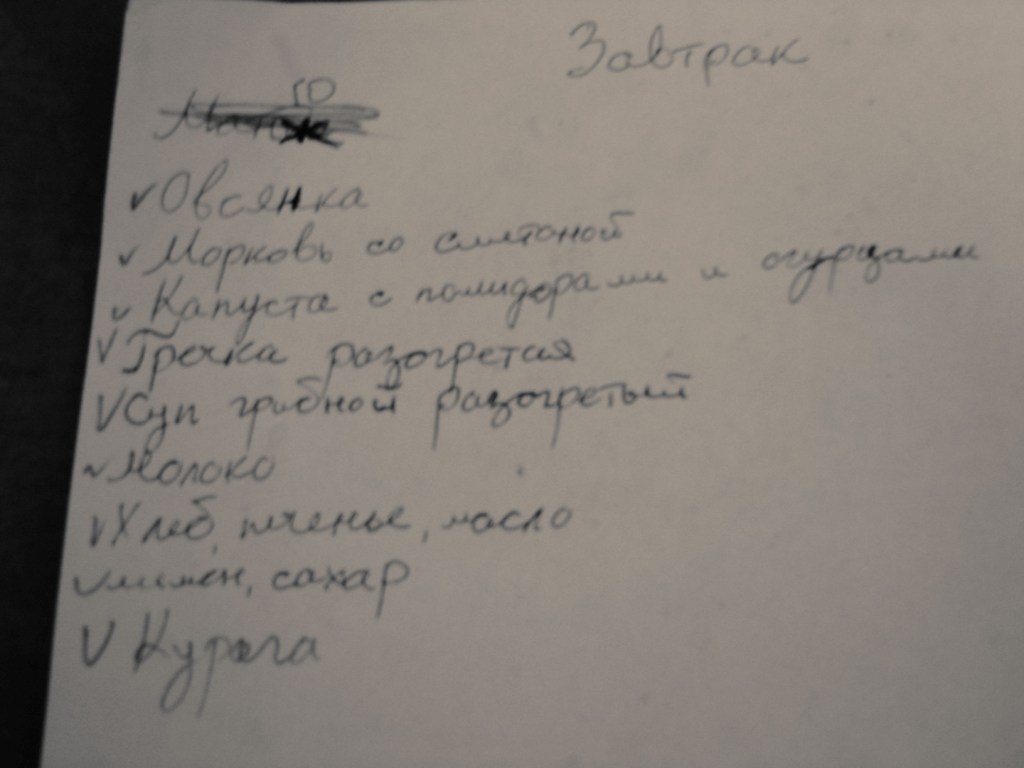 Завтрак
Овсянка
Морковь со сметаной
Капуста с помидорами и огурцами
Гречка разогретая
Суп грибной разогретый
Молоко
Хлеб, печенье, масло
лимон, сахар
Курага